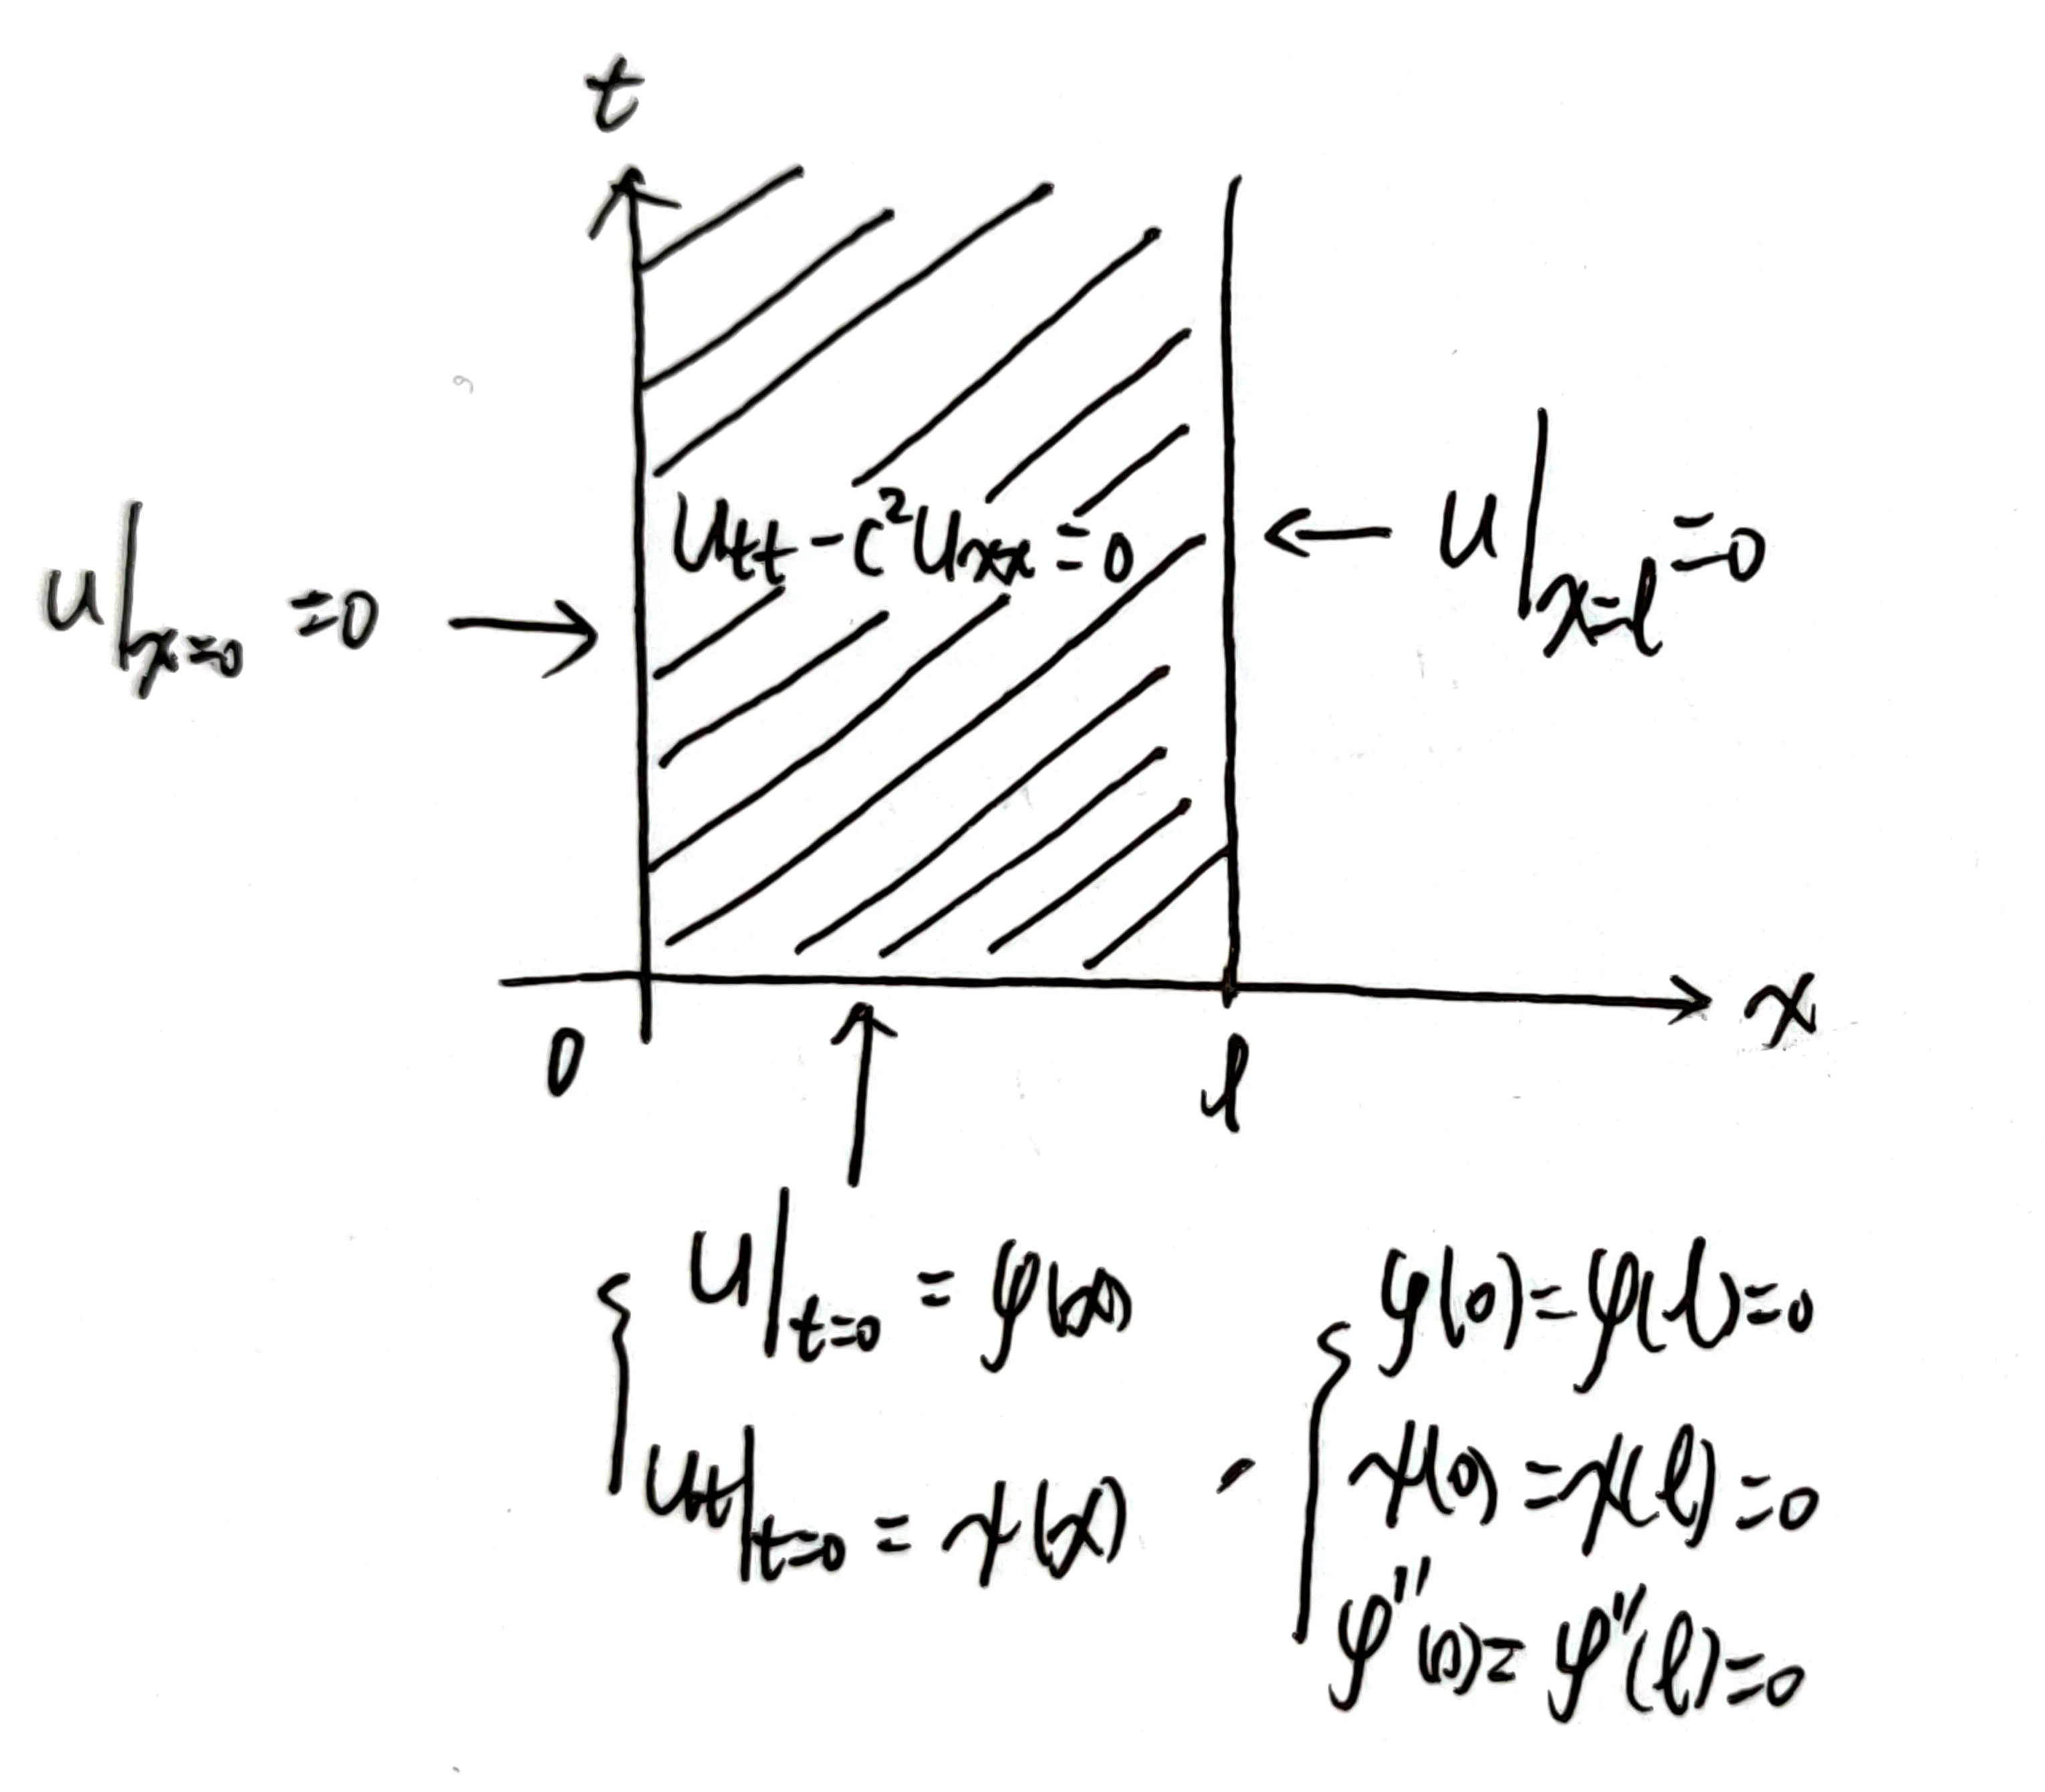 t
u_tt - c²u_xx = 0
u|_x=0 = 0
u|_x=l = 0
x
0
l
u|_t=0 = φ(x)
u_tt|_t=0 = ψ(x) ,
φ(0) = φ(l) = 0
ψ(0) = ψ(l) = 0
φ''(0) = φ''(l) = 0